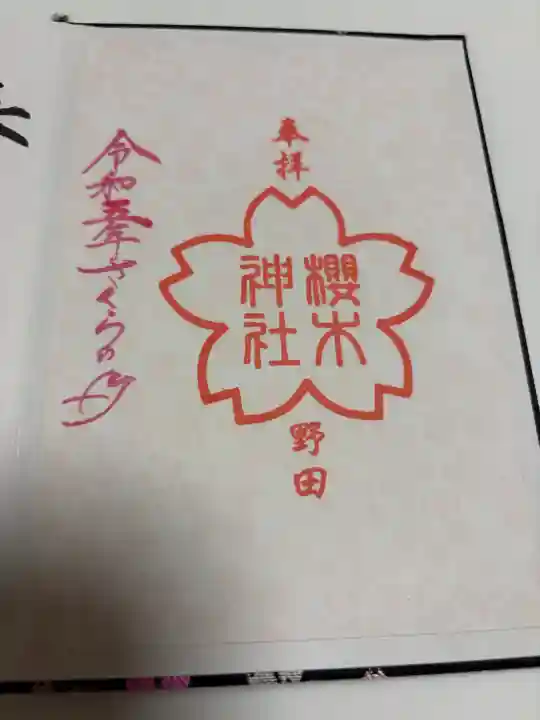 奉拝
櫻木
神社
野田
令和五年さくらの日